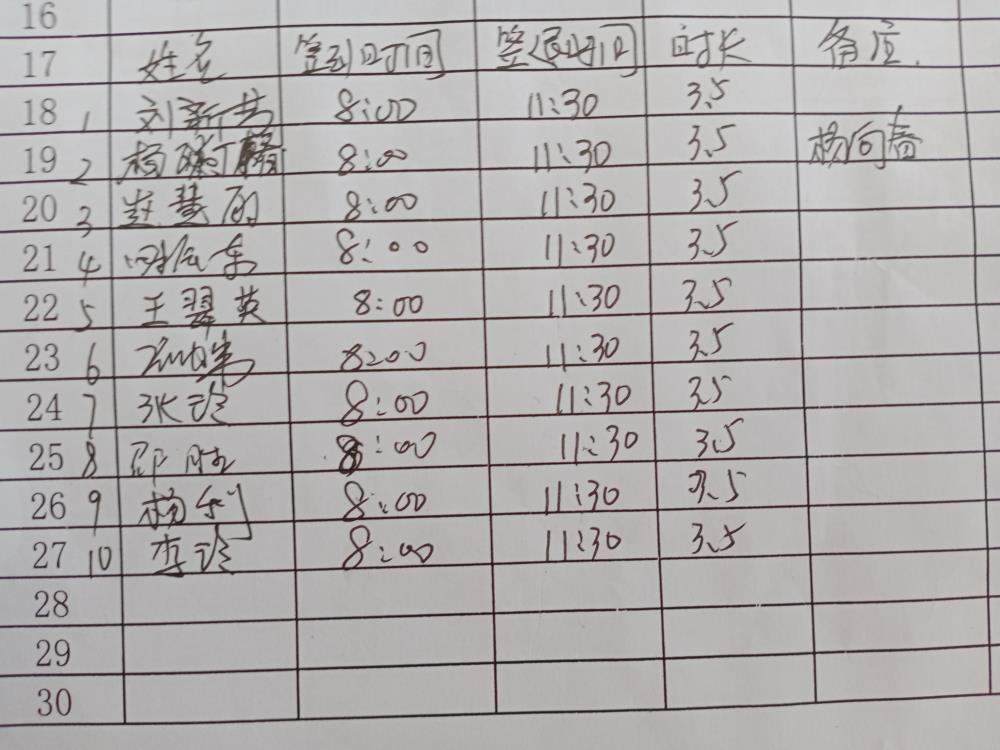 16
17 姓名 签到时间 签退时间 时长 备注
18 1 刘新芳 8:00 11:30 3.5
19 2 杨 8:00 11:30 3.5 杨向春
20 3 赵慧 8:00 11:30 3.5
21 4 8:00 11:30 3.5
22 5 王翠英 8:00 11:30 3.5
23 6 8:00 11:30 3.5
24 7 张玲 8:00 11:30 3.5
25 8 8:00 11:30 3.5
26 9 杨 8:00 11:30 3.5
27 10 李玲 8:00 11:30 3.5
28
29
30